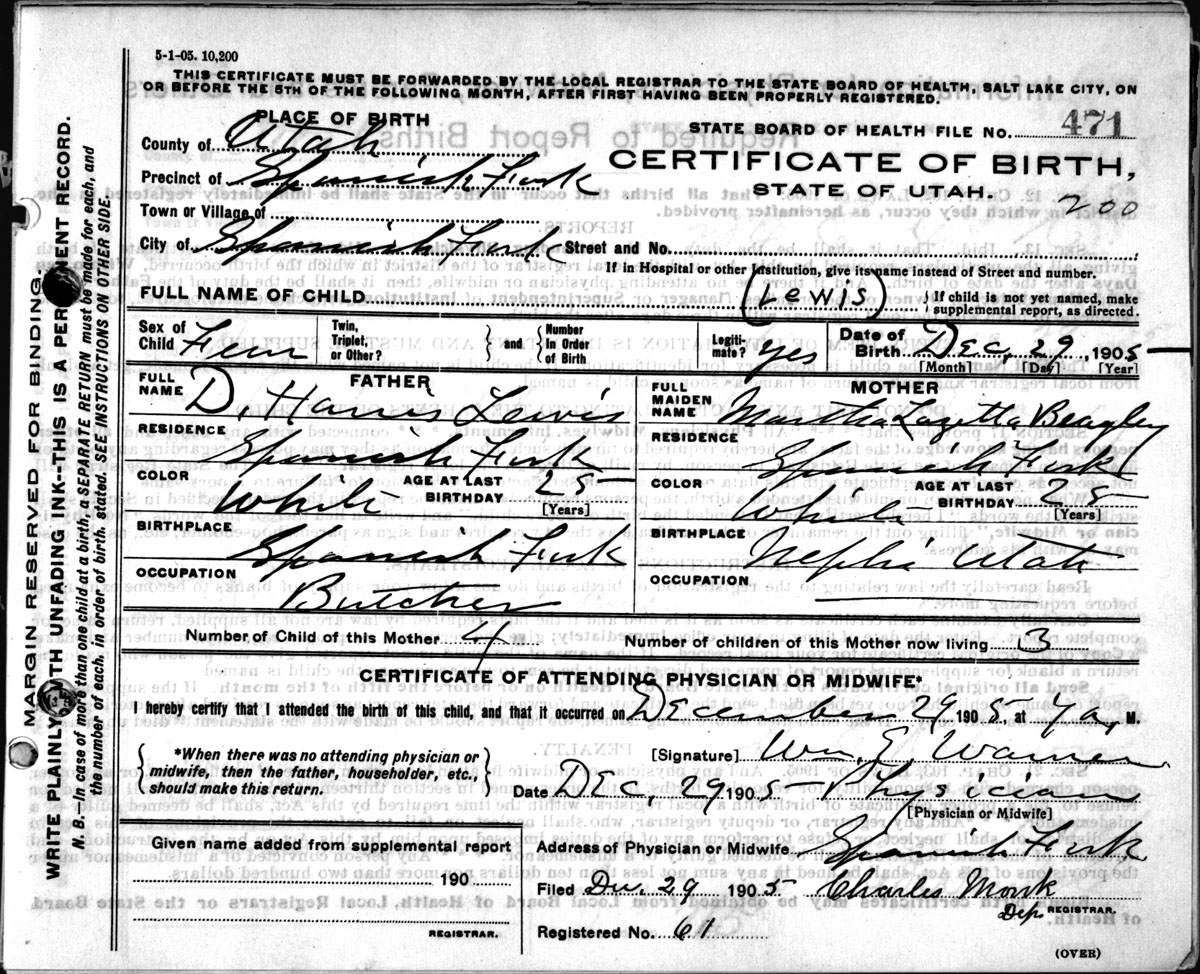 5-1-05. 10,200
THIS CERTIFICATE MUST BE FORWARDED BY THE LOCAL REGISTRAR TO THE STATE BOARD OF HEALTH, SALT LAKE CITY, ON
OR BEFORE THE 5TH OF THE FOLLOWING MONTH, AFTER FIRST HAVING BEEN PROPERLY REGISTERED.
PLACE OF BIRTH
STATE BOARD OF HEALTH FILE NO. 471
County of Utah
CERTIFICATE OF BIRTH,
Precinct of Spanish Fork
STATE OF UTAH.
200
Town or Village of
City of Spanish Fork Street and No.
If in Hospital or other Institution, give its name instead of Street and number.
FULL NAME OF CHILD (Lewis) } If child is not yet named, make supplemental report, as directed.
Sex of Child Fem Twin, Triplet, or Other? } and { Number In Order of Birth Legiti- mate? yes Date of Birth Dec, 29, 1905
[Month] [Day] [Year]
FATHER
FULL NAME D. Harris Lewis
RESIDENCE
Spanish Fork
COLOR White AGE AT LAST BIRTHDAY 25
[Years]
BIRTHPLACE
Spanish Fork
OCCUPATION
Butcher
MOTHER
FULL MAIDEN NAME Martha Lazetta Beagley
RESIDENCE
Spanish Fork
COLOR White AGE AT LAST BIRTHDAY 25
[Years]
BIRTHPLACE
Nephi Utah
OCCUPATION
Number of Child of this Mother 4 Number of children of this Mother now living 3
CERTIFICATE OF ATTENDING PHYSICIAN OR MIDWIFE*
I hereby certify that I attended the birth of this child, and that it occurred on December 29 1905, at 7 a, M.
*When there was no attending physician or
midwife, then the father, householder, etc.,
should make this return.
[Signature] Wm, E, Warner
Date Dec, 29 1905 Physician
[Physician or Midwife]
Given name added from supplemental report
190
REGISTRAR.
Address of Physician or Midwife Spanish Fork
Filed Dec. 29 1905 Charles Monk
Dep REGISTRAR.
Registered No. 61
(OVER)
MARGIN RESERVED FOR BINDING.
WRITE PLAINLY WITH UNFADING INK--THIS IS A PERMANENT RECORD.
N. B.—In case of more than one child at a birth, a SEPARATE RETURN must be made for each, and
the number of each, in order of birth, stated. SEE INSTRUCTIONS ON OTHER SIDE.